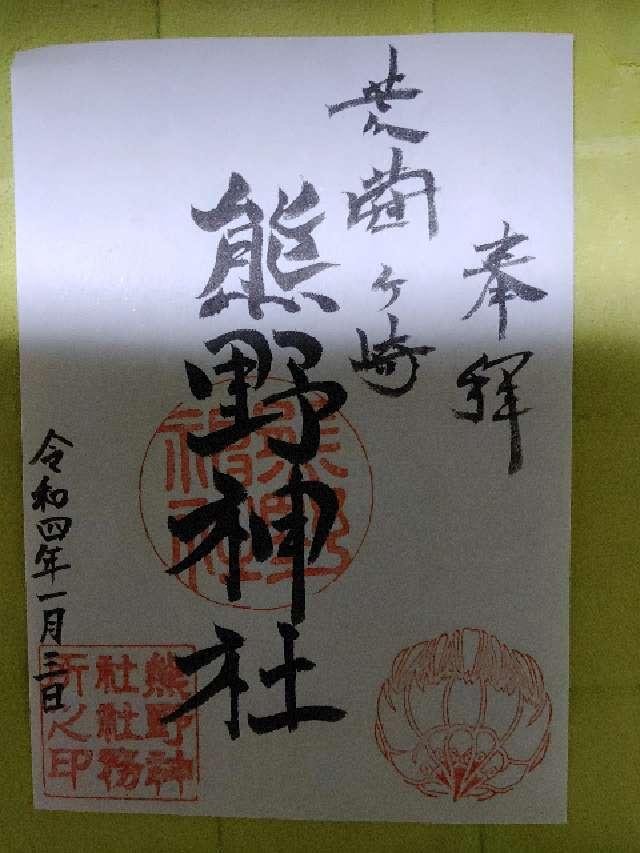 奉拝
荒曲ヶ崎
熊野神社
令和四年一月三日
熊野神社
熊野神
社社務
所之印